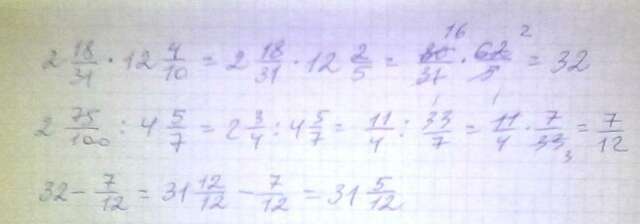 2 18/31 · 12 4/10 = 2 18/31 · 12 2/5 = 80/31 · 62/5 = 32 (16, 2)
2 75/100 : 4 5/7 = 2 3/4 : 4 5/7 = 11/4 : 33/7 = 11/4 · 7/33 = 7/12 (1, 1, 3)
32 - 7/12 = 31 12/12 - 7/12 = 31 5/12